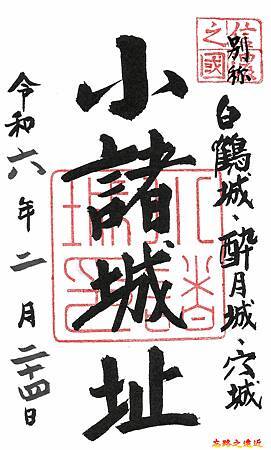 信濃
之國
別称
白鶴城・酔月城・穴城
小諸城址
令和六年二月二十四日
左豬之遠近